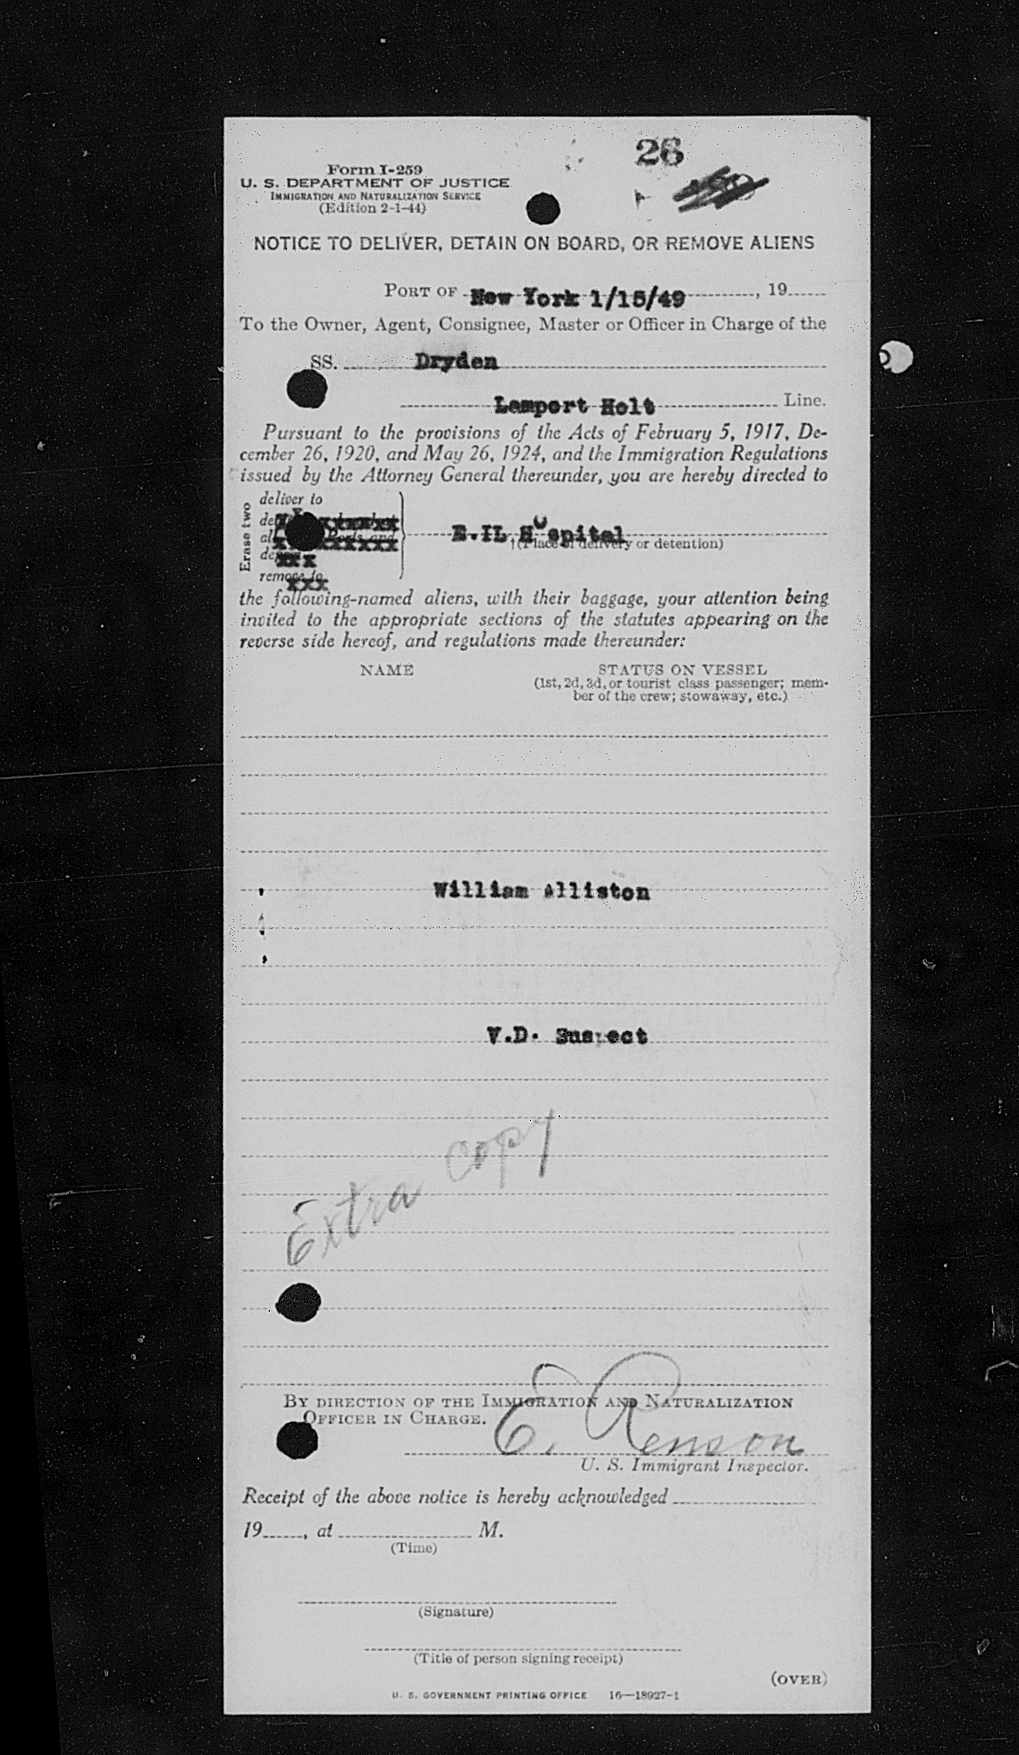 26
Form I-259
U. S. DEPARTMENT OF JUSTICE
IMMIGRATION AND NATURALIZATION SERVICE
(Edition 2-1-44)
NOTICE TO DELIVER, DETAIN ON BOARD, OR REMOVE ALIENS
PORT OF New York 1/15/49, 19
To the Owner, Agent, Consignee, Master or Officer in Charge of the
SS. Dryden
Lamport Holt Line.
Pursuant to the provisions of the Acts of February 5, 1917, De-
cember 26, 1920, and May 26, 1924, and the Immigration Regulations
issued by the Attorney General thereunder, you are hereby directed to
Erase two
deliver to
remove to
E.IL Hospital
(Place of delivery or detention)
the following-named aliens, with their baggage, your attention being
invited to the appropriate sections of the statutes appearing on the
reverse side hereof, and regulations made thereunder:
NAME STATUS ON VESSEL
(1st, 2d, 3d, or tourist class passenger; mem-
ber of the crew; stowaway, etc.)
William Alliston
V.D. Suspect
Extra copy
BY DIRECTION OF THE IMMIGRATION AND NATURALIZATION
OFFICER IN CHARGE.
E. Renson
U. S. Immigrant Inspector.
Receipt of the above notice is hereby acknowledged
19, at M.
(Time)
(Signature)
(Title of person signing receipt)
(OVER)
U. S. GOVERNMENT PRINTING OFFICE 16—18927-1